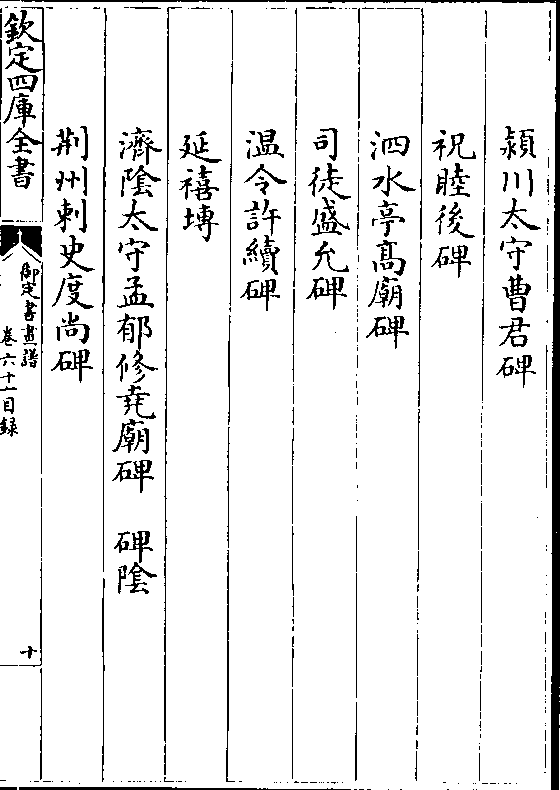 潁川太守曹君碑
祝睦後碑
泗水亭高廟碑
司徒盛允碑
温令許續碑
延禧塼
濟隂太守孟郁修堯廟碑　碑隂
荆州刺史度尚碑
欽定四庫全書
御定書畫譜
卷六十一目録
十